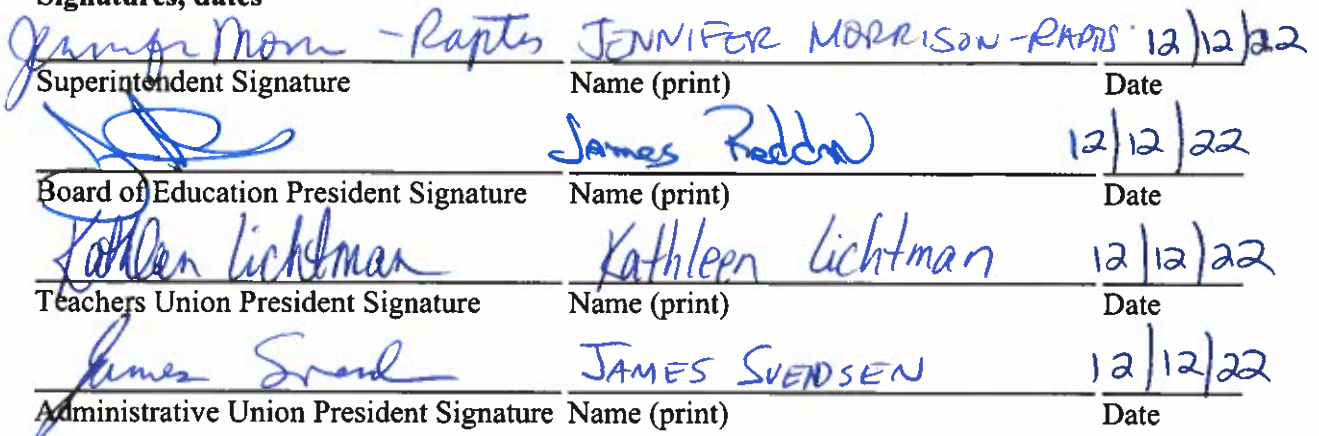 Signatures, dates
Jennifer Morr -Raptis JENNIFER MORRISON-RAPTIS 12/12/22
Superintendent Signature Name (print) Date
James 12/12/22
Board of Education President Signature Name (print) Date
Kathleen Lichtman Kathleen Lichtman 12/12/22
Teachers Union President Signature Name (print) Date
James JAMES SVENDSEN 12/12/22
Administrative Union President Signature Name (print) Date